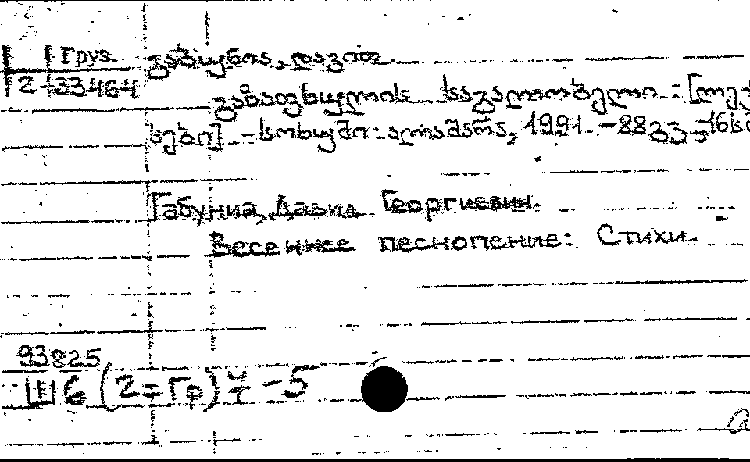 Груз.
2-33464
გაბუნია, დავით
გაზაფხულის საგალობელი : [ლექ-
სები] . - სოხუმი : ალაშარა, 1991. - 88 გვ ; 16 სმ
Габуния, Давид Георгиевич.
Весеннее песнопение: Стихи.
93825
Ш6(2=Гр)
-5